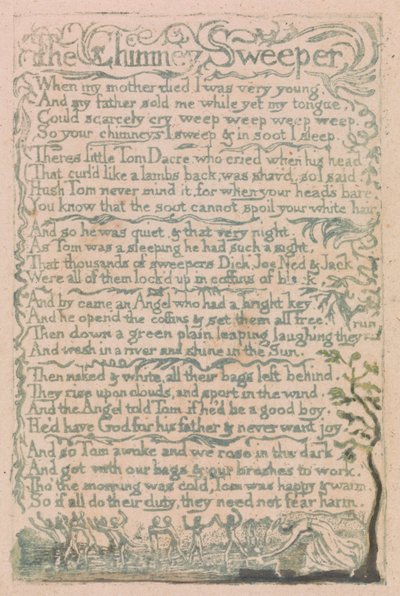 The Chimney Sweeper
When my mother died I was very young
And my father sold me while yet my tongue,
Could scarcely cry weep weep weep weep.
So your chimneys I sweep & in soot I sleep.
Theres little Tom Dacre, who cried when his head
That curl'd like a lambs back, was shav'd, so I said.
Hush Tom never mind it, for when your heads bare,
You know that the soot cannot spoil your white hair
And so he was quiet, & that very night.
As Tom was a sleeping he had such a sight,
That thousands of sweepers Dick, Joe, Ned & Jack
Were all of them lock'd up in coffins of
And by came an Angel who had a bright key
And he open'd the coffins & set them all free.
Then down a green plain leaping laughing they run
And wash in a river and shine in the Sun.
Then naked & white, all their bags left behind.
They rise upon clouds, and sport in the wind.
And the Angel told Tom, if he'd be a good boy,
He'd have God for his father & never want joy
And so Tom awoke and we rose in the dark
And got with our bags & our brushes to work.
Tho' the morning was cold, Tom was happy & warm
So if all do their duty, they need not fear harm.